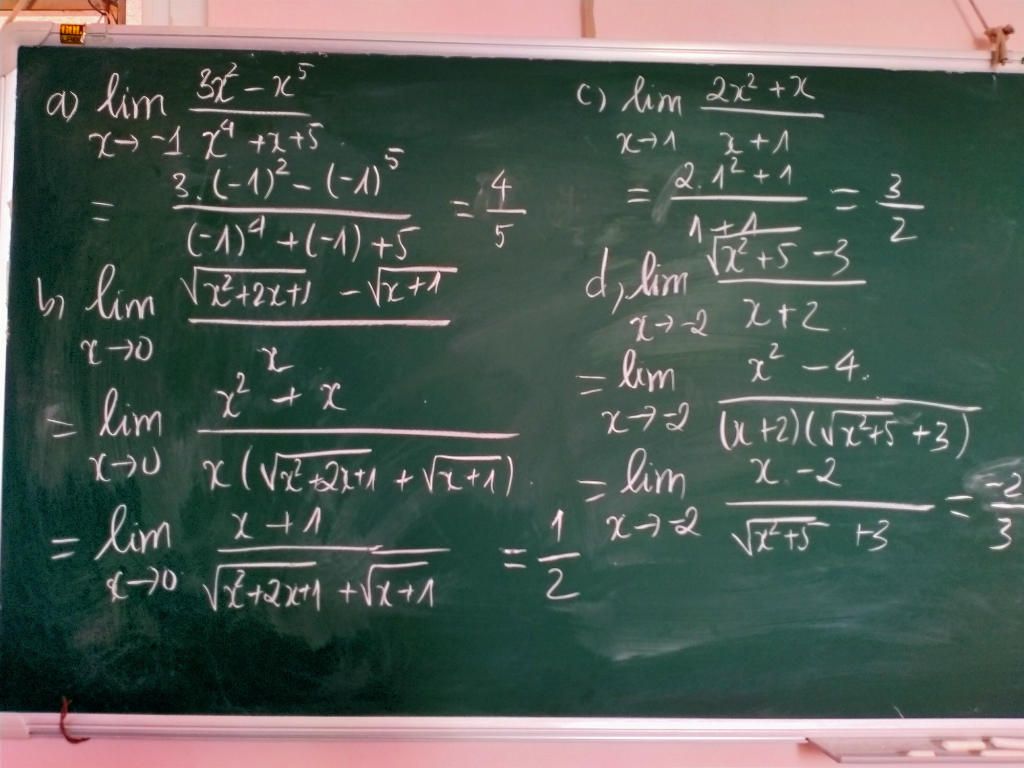 a) lim_{x→-1} \frac{3x^2 - x^5}{x^4 + x + 5}
= \frac{3.(-1)^2 - (-1)^5}{(-1)^4 + (-1) + 5} = \frac{4}{5}
b) lim_{x→0} \frac{\sqrt{x^2+2x+1} - \sqrt{x+1}}{x}
= lim_{x→0} \frac{x^2 + x}{x(\sqrt{x^2+2x+1} + \sqrt{x+1})}
= lim_{x→0} \frac{x+1}{\sqrt{x^2+2x+1} + \sqrt{x+1}} = \frac{1}{2}
c) lim_{x→1} \frac{2x^2 + x}{x+1}
= \frac{2.1^2 + 1}{1+1} = \frac{3}{2}
d, lim_{x→-2} \frac{\sqrt{x^2+5} - 3}{x+2}
= lim_{x→-2} \frac{x^2 - 4}{(x+2)(\sqrt{x^2+5} + 3)}
= lim_{x→-2} \frac{x-2}{\sqrt{x^2+5} + 3} = \frac{-2}{3}